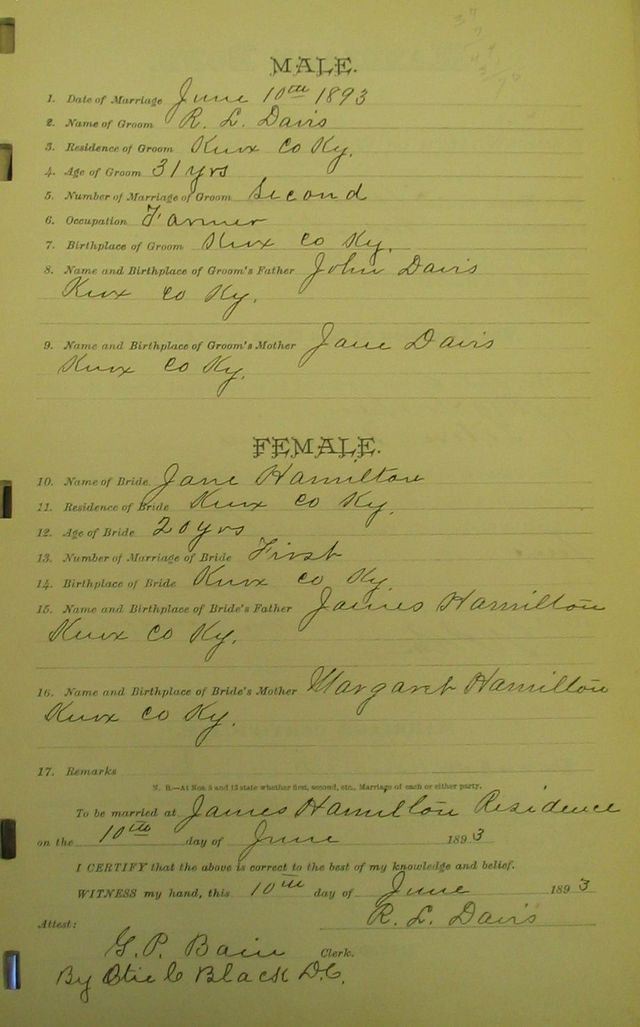 MALE.
1. Date of Marriage June 10th 1893
2. Name of Groom R. L. Davis
3. Residence of Groom Knox Co Ky.
4. Age of Groom 31 yrs
5. Number of Marriage of Groom Second
6. Occupation Farmer
7. Birthplace of Groom Knox Co Ky.
8. Name and Birthplace of Groom's Father John Davis
Knox Co Ky.
9. Name and Birthplace of Groom's Mother Jane Davis
Knox Co Ky.
FEMALE.
10. Name of Bride Jane Hamilton
11. Residence of Bride Knox Co Ky.
12. Age of Bride 20 yrs
13. Number of Marriage of Bride First
14. Birthplace of Bride Knox Co Ky
15. Name and Birthplace of Bride's Father James Hamilton
Knox Co Ky.
16. Name and Birthplace of Bride's Mother Margaret Hamilton
Knox Co Ky.
17. Remarks
N. B.—At Nos. 5 and 13 state whether first, second, etc., Marriage of each or either party.
To be married at James Hamilton Residence
on the 10th day of June 1893
I CERTIFY that the above is correct to the best of my knowledge and belief.
WITNESS my hand, this 10th day of June 1893
R. L. Davis
Attest:
G. P. Bain Clerk.
By Black D.C.